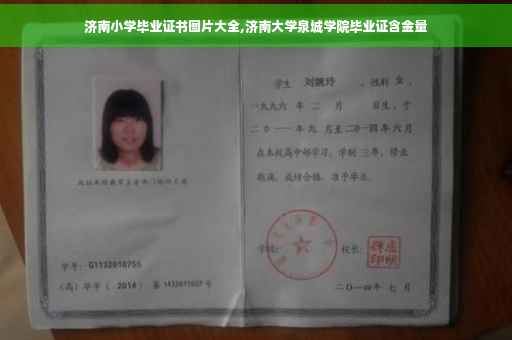 济南小学毕业证书图片大全,济南大学泉城学院毕业证含金量
学生 刘婉玲 ，性别 女 ，
一九九六 年 二 月 日生，于
二〇一一年九 月至二〇一四年六月
在本校高中部学习，学制 三年，修业
期满，成绩合格，准予毕业。
学校： 校长：
学号：G1132010755
(高) 毕字（ 2014 ）第 1432011027 号
二〇一四年 七 月